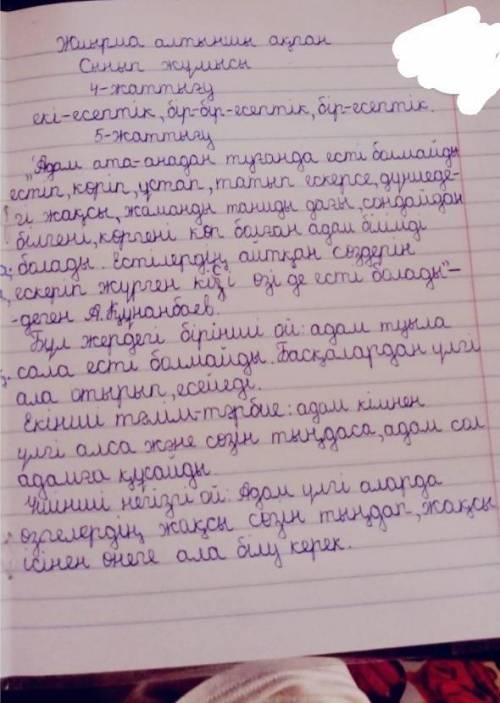 Жиырма алтыншы ақпан
Сынып жұмысы
4-жаттығу
екі-есептік, бір-бір-есептік, бір-есептік.
5-жаттығу
"Адам ата-анадан туғанда есті болмайды
естіп, көріп, ұстап, татып ескерсе, дүниеде-
гі жақсы, жаманды таниды дағы, сондайдан
білгені, көргені көп болған адам білімді
болады. Естілердің айтқан сөздерін
ескеріп жүрген кісі өзі де есті болады"-
-деген А.Құнанбаев.
Бұл жердегі бірінші ой: адам туыла
сала есті болмайды. Басқалардан үлгі
ала отырып, есейеді.
Екінші тәлім-тәрбие: адам кімнен
үлгі алса және сөзін тыңдаса, адам сол
адамға құсайды.
Үшінші негізгі ой: Адам үлгі аларда
өзгелердің жақсы сөзін тыңдап, жақсы
ісінен өнеге ала білу керек.